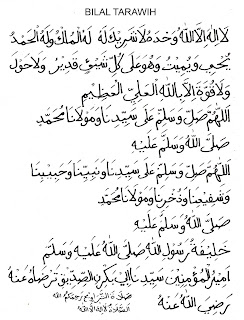 BILAL TARAWIH
لا اله الا الله وحده لا شريك له له الملك وله الحمد
يحيي ويميت وهو على كل شيئ قدير ولا حول
ولا قوة الا بالله العلي العظيم
اللهم صل وسلم على سيدنا ومولانا محمد
صلى الله وسلم عليه
اللهم صل وسلم على سيدنا ونبينا وحبيبنا
وشفيعنا وذخرنا ومولانا محمد
صلى الله وسلم عليه
خليفة رسول الله صلى الله عليه وسلم
امير المؤمنين سيدنا ابي بكرن الصديق ترضوا عنه
رضي الله عنه